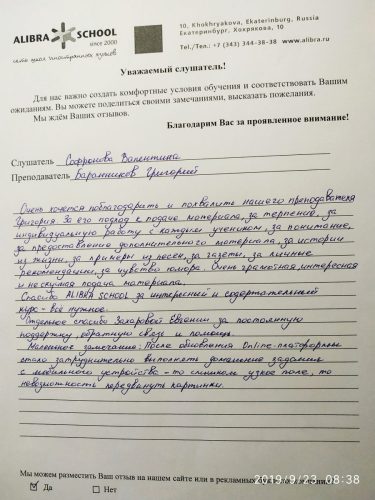 ALIBRA SCHOOL
since 2000
сеть школ иностранных языков
10, Khokhryakova, Ekaterinburg, Russia
Екатеринбург, Хохрякова, 10
Tel./Тел.: +7 (343) 344-38-38 www.alibra.ru
Уважаемый слушатель!
Для нас важно создать комфортные условия обучения и соответствовать Вашим
ожиданиям. Вы можете поделиться своими замечаниями, высказать пожелания.
Мы ждём Ваших отзывов.
Благодарим Вас за проявленное внимание!
Слушатель Софронова Валентина
Преподаватель Баранников Григорий
Очень хочется поблагодарить и похвалить нашего преподавателя
Григория. За его подход к подаче материала, за терпение, за
индивидуальную работу с каждым учеником, за понимание,
за предоставление дополнительного материала, за истории
из жизни, за примеры из песен, за газеты, за личные
рекомендации, за чувство юмора. Очень грамотная интересная
и нескучная подача материала.
Спасибо ALIBRA SCHOOL за интересный и содержательный
курс - всё нужное.
Отдельное спасибо Захаровой Евгении за постоянную
поддержку, обратную связь и помощь.
Маленькое замечание: После обновления Online-платформы
стало затруднительно выполнять домашние задания
с мобильного устройства - то слишком узкое поле, то
невозможность передвинуть картинки.
Мы можем разместить Ваш отзыв на нашем сайте или в рекламных
Да Нет
2019/9/23 08:38